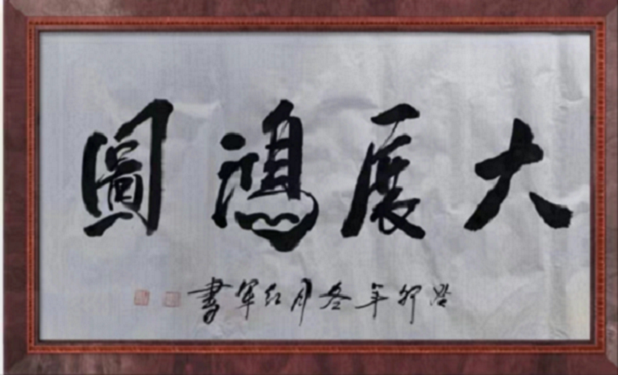 大展鴻圖
癸卯年冬月红軍書